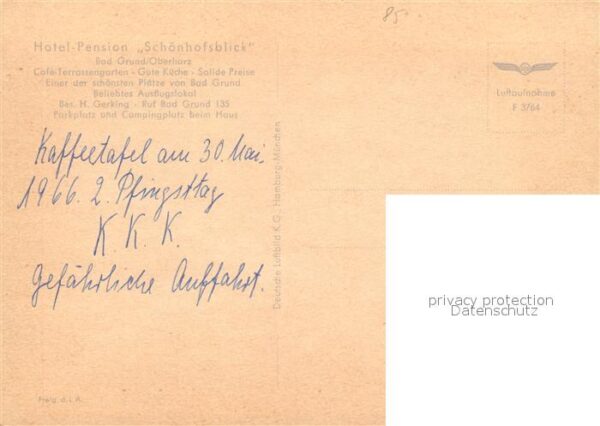 85.
Hotel-Pension „Schönhofsblick"
Bad Grund/Oberharz
Café-Terrassengarten · Gute Küche · Solide Preise
Einer der schönsten Plätze von Bad Grund
Beliebtes Ausflugslokal
Bes. H. Gerking · Ruf Bad Grund 135
Parkplatz und Campingplatz beim Haus
Luftaufnahme
F 3764
Kaffeetafel am 30. Mai.
1966. 2. Pfingsttag
K. K. K.
Gefährliche Auffahrt.
Deutsche Luftbild K.G., Hamburg-München
Freig. d. L.A.
privacy protection
Datenschutz